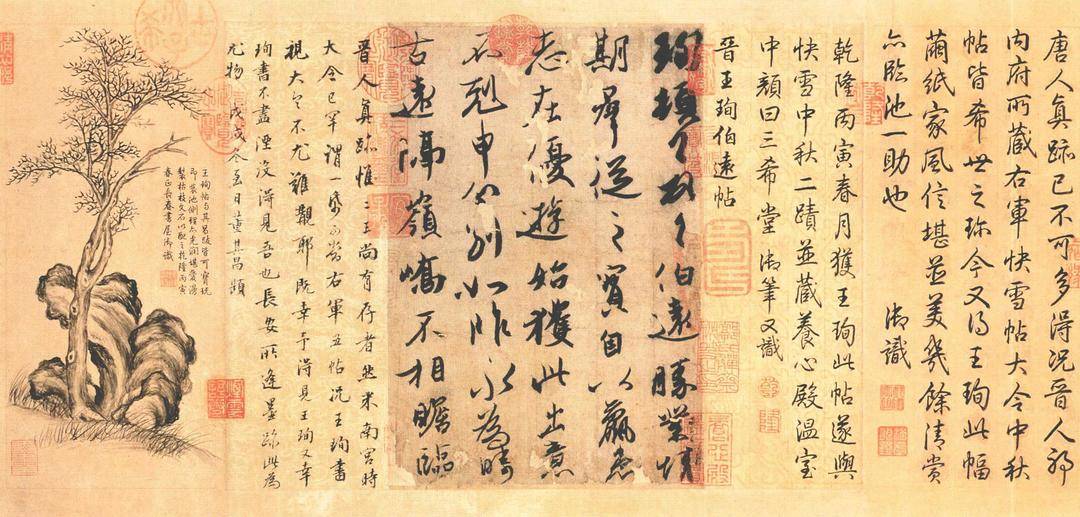 唐人真跡已不可多得況晉人耶
内府所藏右軍快雪帖大令中秋
帖皆希世之珍今又得王珣此幅
繭紙家風信堪並美幾餘清賞
亦臨池一助也 御識
乾隆丙寅春月獲王珣此帖遂與
快雪中秋二蹟並藏養心殿溫室
中顏曰三希堂 御筆又識
乾隆
晉王珣伯遠帖
珣頓首頓首伯遠勝業情
期羣從之寶自以羸患
志在優遊始獲此出意
不剋申分別如昨永為疇
古遠隔嶺嶠不相瞻臨
晉人真跡惟二王尚有存者然米南宮時
大令已罕謂一紙可當右軍五帖況王珣書
視大令不尤難覯耶既幸予得見王珣又幸
珣書不盡湮沒得見吾也長安所逢墨跡此為
尤物 戊戌冬至日董其昌題
王珣帖與其昌跋皆可寶玩
即裝池側理亦光潤堪愛漫
製枯枝文石以配之乾隆丙寅
春正長春書屋御識